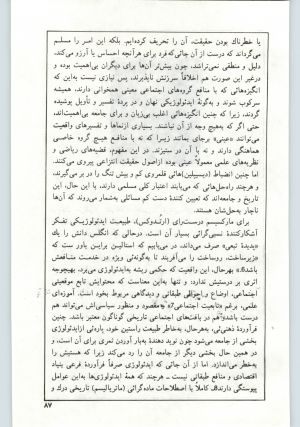 یا خطرناك بودن حقیقت، آن را تحریف كرده‌ایم. بلكه این امر را مسلم
می‌گرداند كه درست از آن جائی‌كه فرد برای هرآنچه احساس یا آرزو می‌كند،
دلیل و منطقی نمی‌تراشد، چون بیش‌تر آن‌ها برای دیگران بی‌اهمیت بوده و
درغیر این صورت هم اخلاقاً سرزنش ناپذیرند، پس نیازی نیست به‌این كه
انگیزه‌هائی كه با منافع گروه‌های اجتماعی معینی همخوانی دارند، همیشه
سركوب شوند و به‌گونهٔ ایدئولوژیكی نهان و در پردهٔ تفسیر و تأویل پوشیده
گردند، زیرا كه چنین انگیزه‌هائی اغلب بی‌زیان و برای جامعه بی‌اهمیت‌اند،
حتی اگر كه به‌هیچ وجه از آن نباشند. بسیاری ازنماها و تفسیرهای واقعیت
می‌توانند «عینی» برجای بمانند زیرا كه نه با منافع هیچ گروه خاصی
هماهنگی دارند و نه با آن در ستیزند. در این مفهوم، قضیه‌های ریاضی و
نظریه‌های علمی معمولاً عینی بوده ازاصول حقیقت انتزاعی پیروی می‌كنند.
اما چنین انضباط (دیسیپلین)‌هائی قلمروی كم و بیش تنگ را در بر می‌گیرند،
و هرچند راه‌حل‌هائی كه می‌یابند اعتبار كلی مسلمی دارند، با این حال، این
تاریخ و جامعه‌اند كه تعیین كنندهٔ دست كم مسائلی به‌شمار می‌روند كه آن‌ها
ناچار به‌حل‌شان هستند.
برای ماركسیسم درست‌رای (ارتدوكس)، طبیعت ایدئولوژیكی تفكر
آشكاركنندهٔ نسبی‌گرائی بسیار آن است. درحالی كه انگلس دانش را یك
«پدیدهٔ تبعی» صرف می‌داند، در می‌یابیم كه استالین براین باور ست كه
«زیرساخت، روساخت را می‌آفریند تا به‌گونه‌ئی ویژه در خدمت منافعش
باشد» به‌هرحال، این واقعیت كه حكمی ریشه به‌ایدئولوژی می‌برد، به‌هیچ‌وجه
اثری بر درستیش ندارد؛ و تنها به‌این معناست كه محتوایش تابع موقعیتی
اجتماعی، اوضاع و احوالی طبقاتی و دیدگاهی مربوط بخود است. آموزه‌ای
علمی، برغم «تبعیت اجتماعی» به‌مقصود و منظور سیاسی‌اش می‌تواند هم
درست باشد و هم در بافت‌های اجتماعی تاریخی گوناگون معتبر باشد. چنین
فرآوردهٔ ذهنی‌ئی، به‌هرحال، به‌خاطر طبیعت راستین خود، پاره‌ئی ازایدئولوژی
بخشی از جامعه می‌شود چون نوید دهندهٔ به‌بار آوردن ثمری برای آن است، و
در همین حال بخشی دیگر از جامعه آن را رد می‌كند زیرا كه هستیش را
به‌خطر می‌اندازد. اما از آن جائی كه ایدئولوژی صرفاً فرآوردهٔ فرعی بنیاد
اقتصادی و منافع طبقاتی نیست ـ هرچند كه همهٔ ایدئولوژی‌ها به‌این عوامل
پیوستگی دارند، كاملاً با اصطلاحات ماده‌گرائی (ماتریالیسم) تاریخی درك و
۸۷